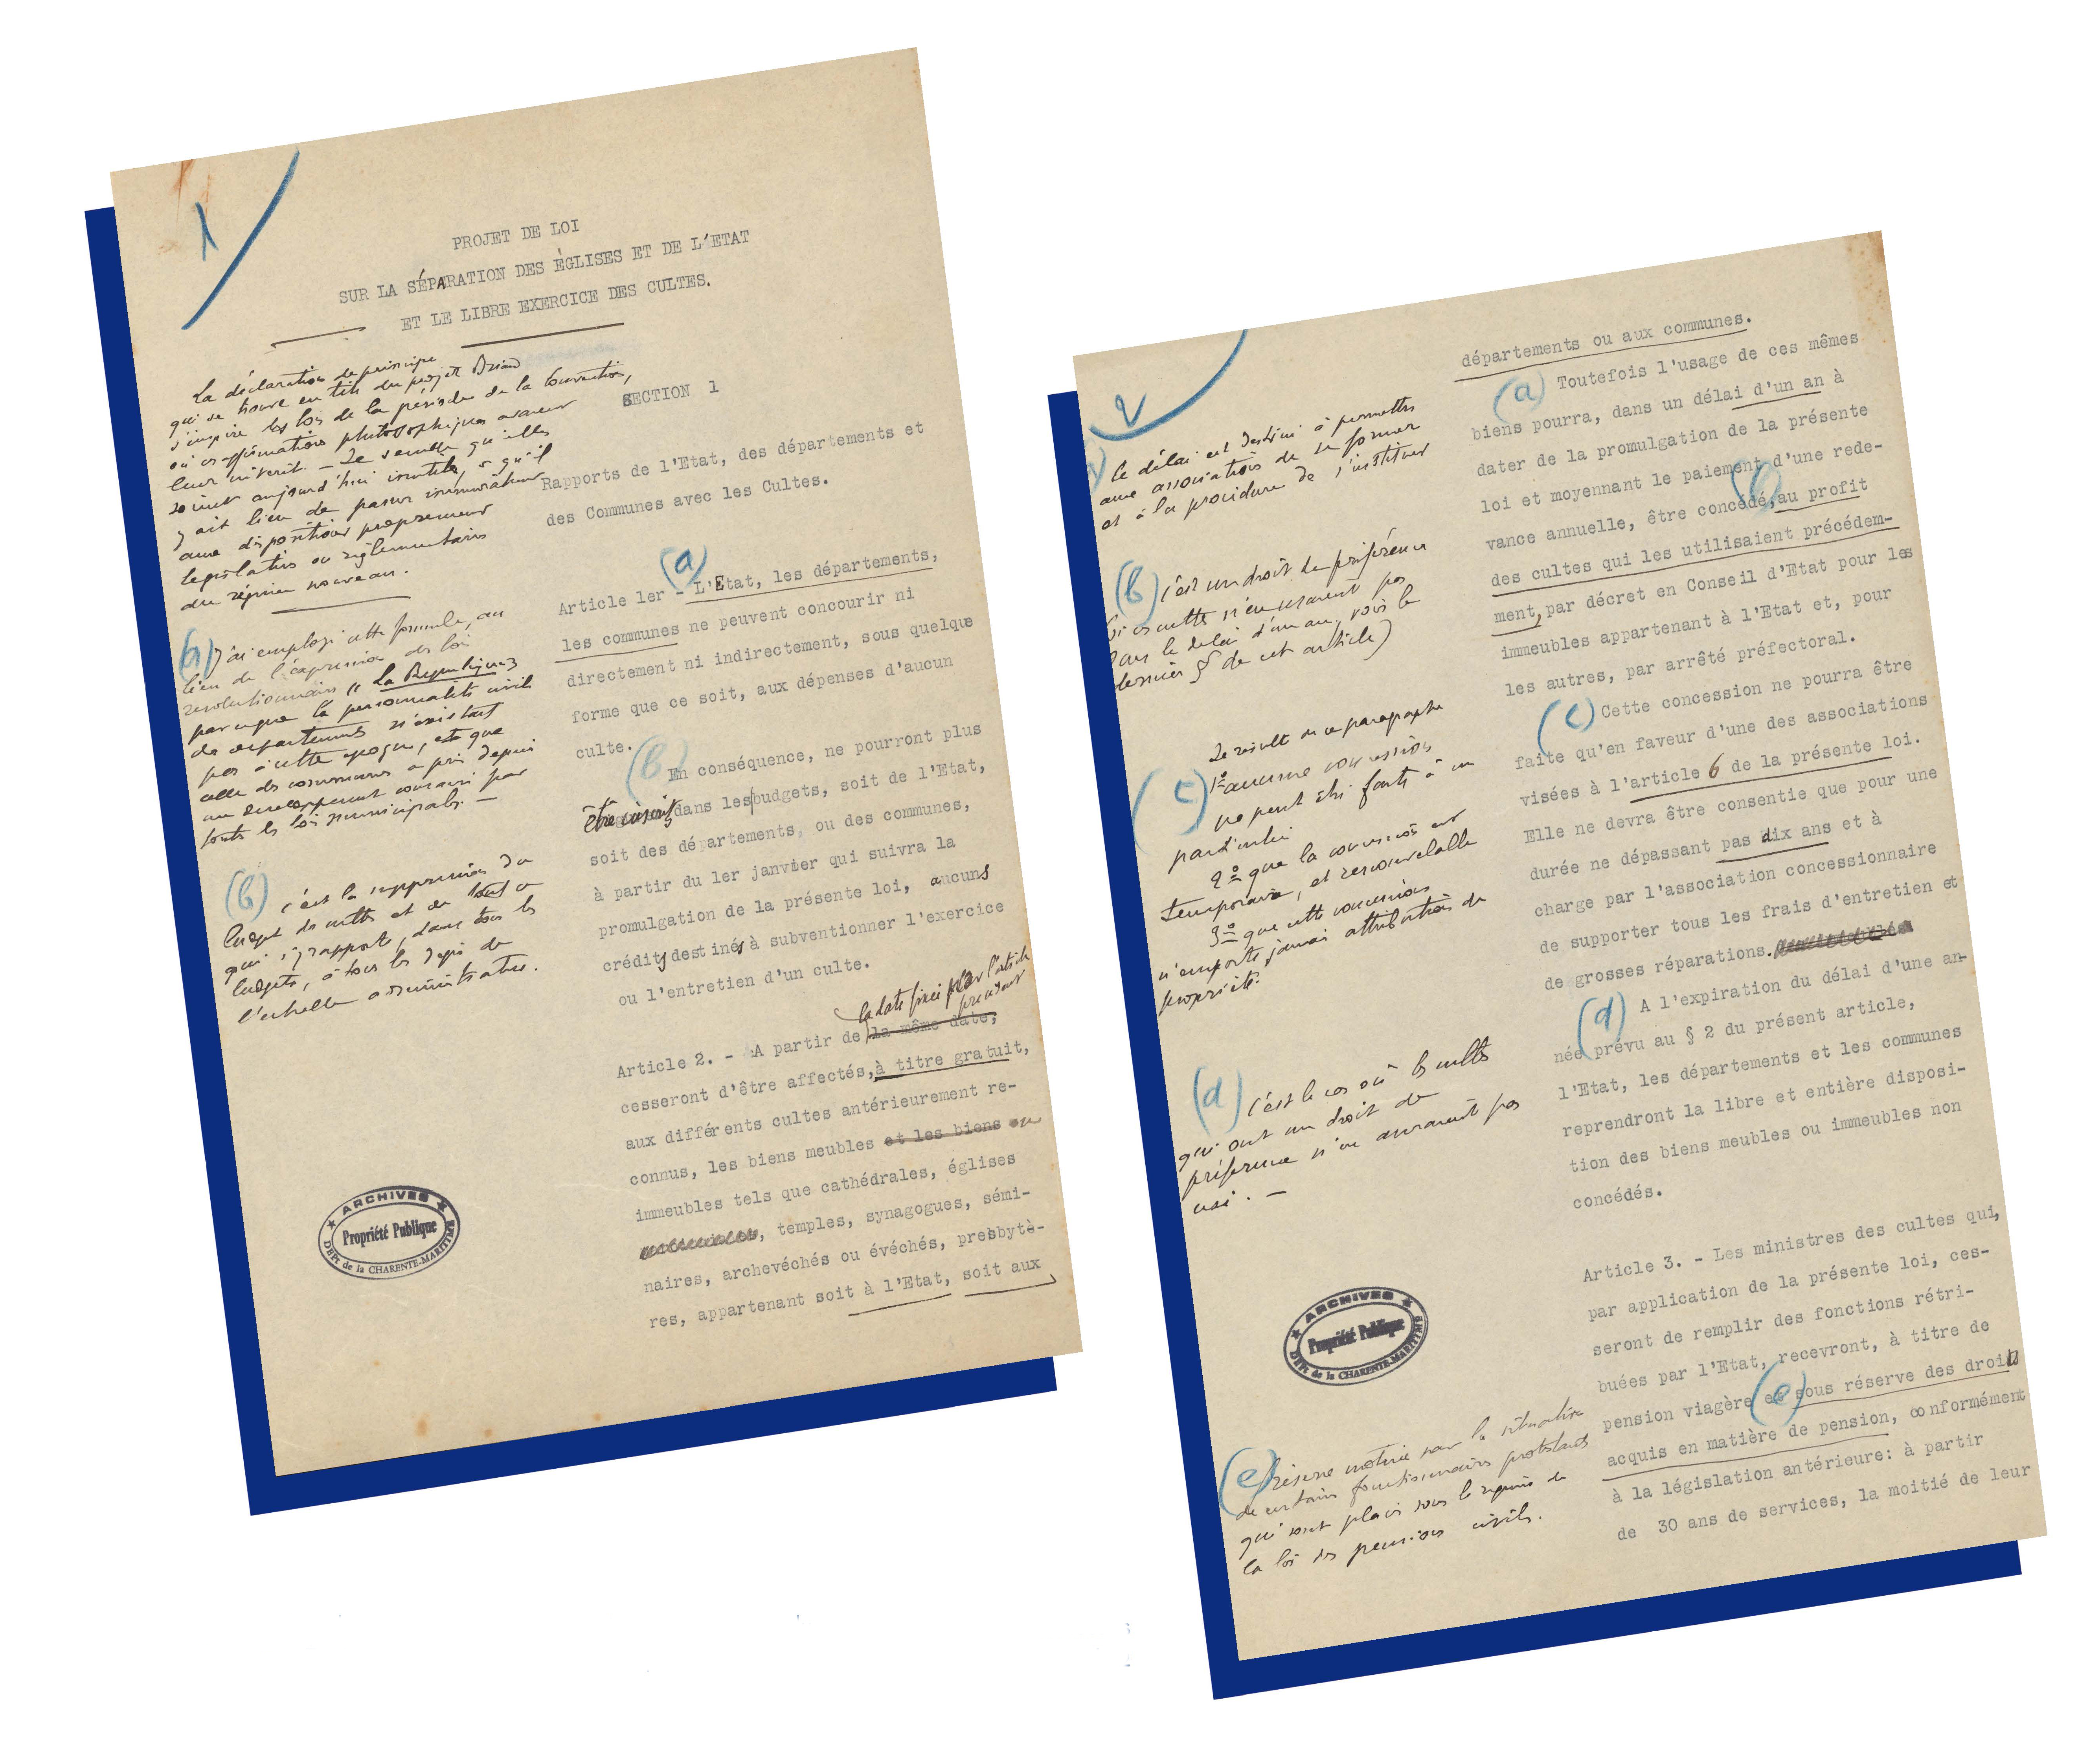 1
PROJET DE LOI
SUR LA SÉPARATION DES ÉGLISES ET DE L'ETAT
ET LE LIBRE EXERCICE DES CULTES.
La déclaration de principe
qui se trouve en tête du projet Briand
s'inspire des lois de la période de la Convention,
où ces affirmations philosophiques avaient
leur intérêt. - Il semble qu'elles
soient aujourd'hui inutiles, et qu'il
y ait lieu de passer immédiatement
aux dispositions proprement
législatives ou réglementaires
du régime nouveau.
SECTION 1
Rapports de l'Etat, des départements et
des Communes avec les Cultes.
(a)
Article 1er - L'Etat, les départements,
les communes ne peuvent concourir ni
directement ni indirectement, sous quelque
forme que ce soit, aux dépenses d'aucun
culte.
(b) En conséquence, ne pourront plus
être inscrits dans les budgets, soit de l'Etat,
soit des départements, ou des communes,
à partir du 1er janvier qui suivra la
promulgation de la présente loi, aucuns
crédits destinés à subventionner l'exercice
ou l'entretien d'un culte.
(a) J'ai employé cette formule, au
lieu de l'expression des lois
révolutionnaires "La République"
parce que la personnalité civile
des départements n'existait
pas à cette époque, et que
celle des communes a pris depuis
un développement consacré par
toutes les lois municipales. -
(b) C'est la suppression du
budget des cultes et de tout ce
qui s'y rapporte, dans tous les
budgets, à tous les degrés de
l'échelle administrative.
la date fixée par l'article
précédent
Article 2. - A partir de la même date,
cesseront d'être affectés, à titre gratuit,
aux différents cultes antérieurement re-
connus, les biens meubles et les biens ou
immeubles tels que cathédrales, églises
, temples, synagogues, sémi-
naires, archevêchés ou évéchés, presbytè-
res, appartenant soit à l'Etat, soit aux
ARCHIVES
Propriété Publique
DÉPt de la CHARENTE-MARITIME
2
départements ou aux communes.
(a) Toutefois l'usage de ces mêmes
biens pourra, dans un délai d'un an à
dater de la promulgation de la présente
loi et moyennant le paiement d'une rede-
(b)
vance annuelle, être concédé, au profit
des cultes qui les utilisaient précédem-
ment, par décret en Conseil d'Etat pour les
immeubles appartenant à l'Etat et, pour
les autres, par arrêté préfectoral.
(c) Cette concession ne pourra être
faite qu'en faveur d'une des associations
visées à l'article 6 de la présente loi.
Elle ne devra être consentie que pour une
durée ne dépassant pas dix ans et à
charge par l'association concessionnaire
de supporter tous les frais d'entretien et
de grosses réparations.
(d) A l'expiration du délai d'une an-
née prévu au § 2 du présent article,
l'Etat, les départements et les communes
reprendront la libre et entière disposi-
tion des biens meubles ou immeubles non
concédés.
Article 3. - Les ministres des cultes qui,
par application de la présente loi, ces-
seront de remplir des fonctions rétri-
buées par l'Etat, recevront, à titre de
pension viagère et (e) sous réserve des droits
acquis en matière de pension, conformément
à la législation antérieure: à partir
de 30 ans de services, la moitié de leur
Ce délai est destiné à permettre
aux associations de se former
et à la procédure de s'instituer
(b) C'est un droit de préférence
si ces cultes n'en usaient pas
dans le délai d'un an, voir le
dernier § de cet article)
(c) Il résulte de ce paragraphe
1º aucune concession
ne peut être faite à un
particulier
2º que la concession est
temporaire, et renouvelable
3º que cette concession
n'emporte jamais attribution de
propriété.
(d) C'est le cas où les cultes
qui ont un droit de
préférence n'en auraient pas
usé. -
ARCHIVES
Propriété Publique
DÉPt de la CHARENTE-MARITIME
(e) Réserve motivée par la situation
de certains fonctionnaires protestants
qui sont placés sous le régime de
la loi des pensions civiles.